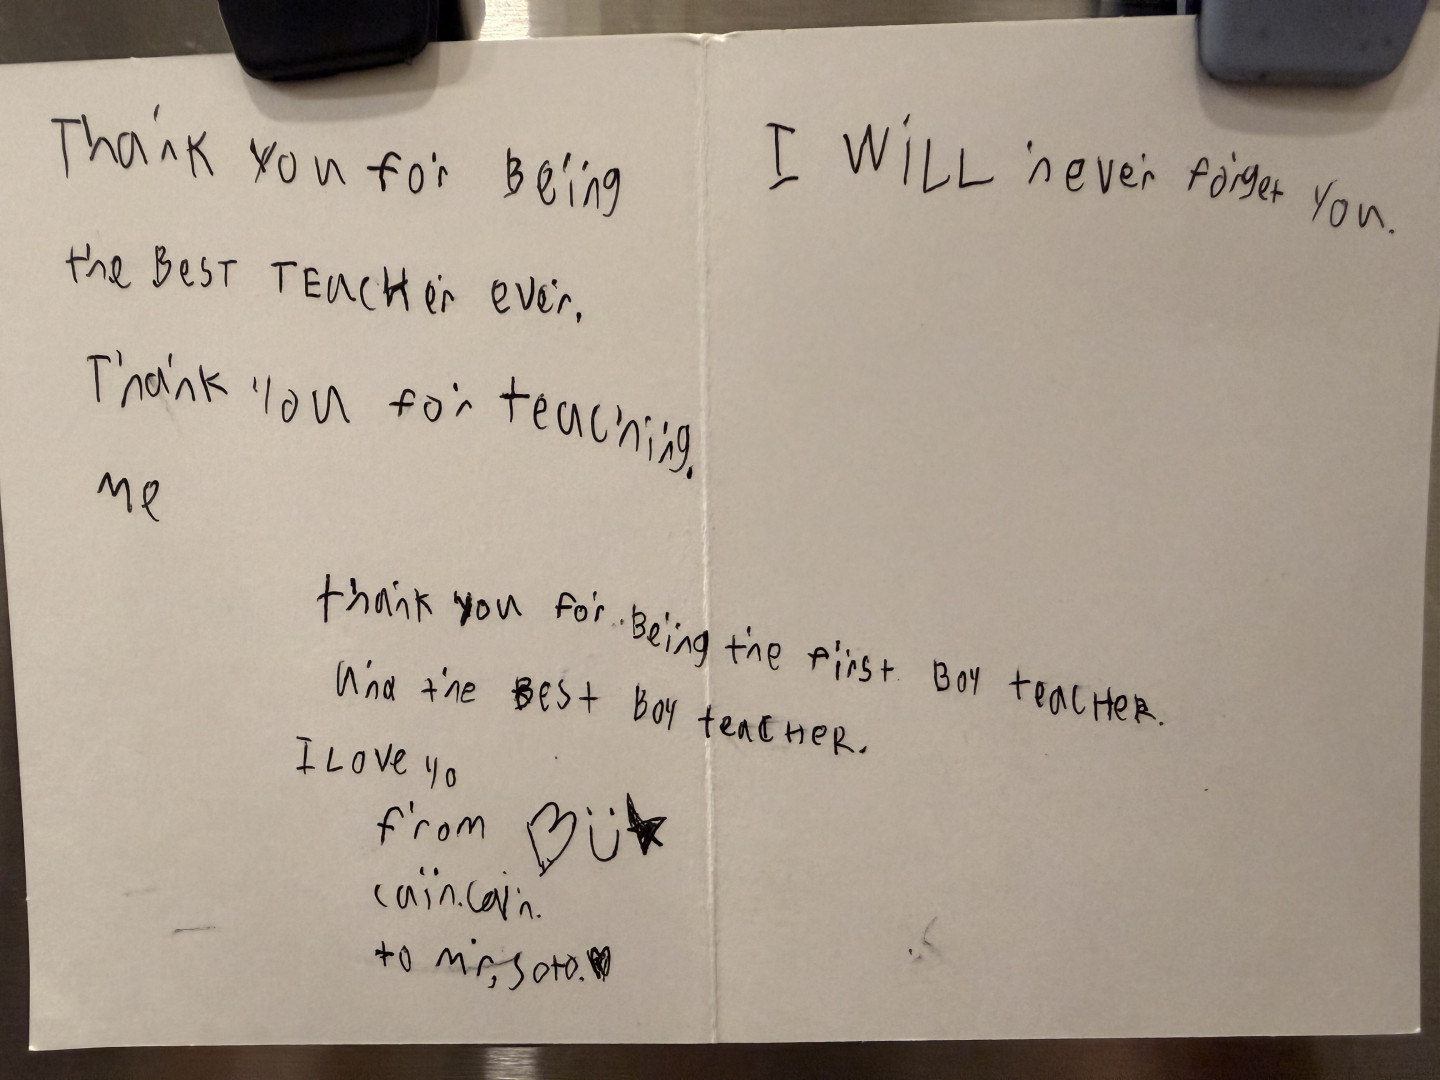 Thank You for Being
the BesT TEacHer ever.
Thank You for teaching.
me
I WiLL never forget You.
thank you for. Being the first Boy teacHeR.
and the Best Boy teacHeR.
I Love yo
from
cain.Cain.
to mr, soto.